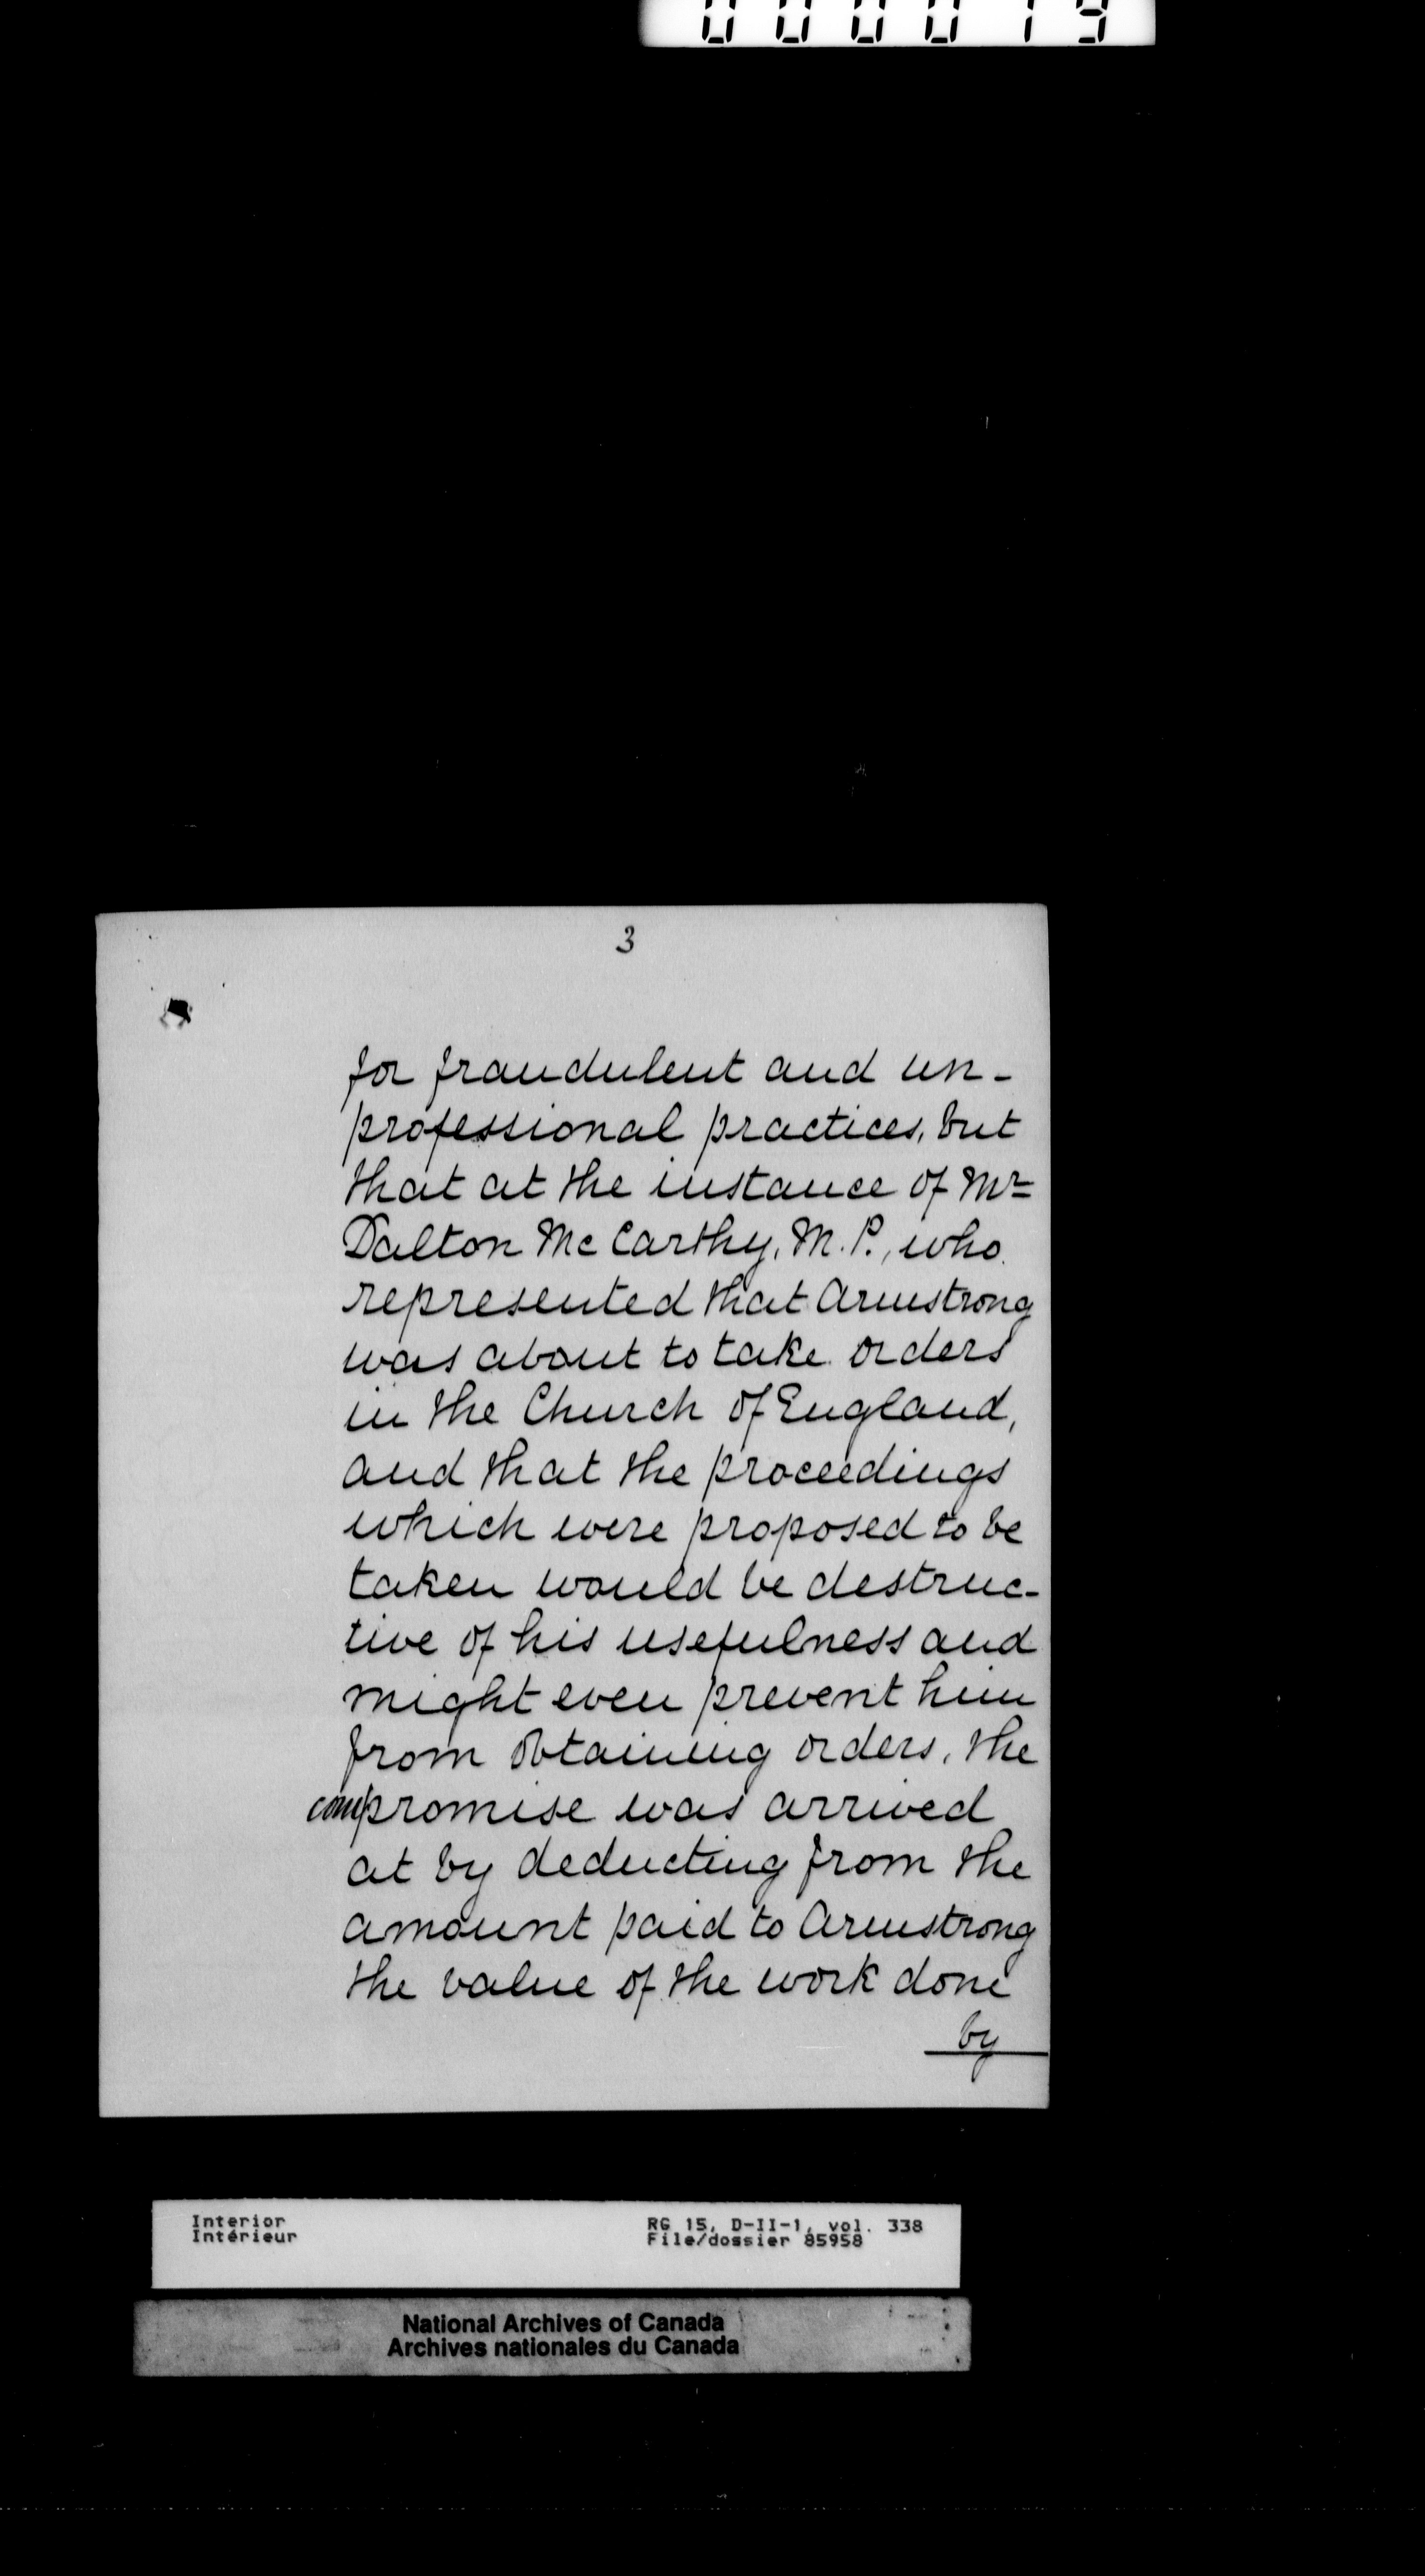 000019
3
for fraudulent and un-
professional practices, but
that at the instance of Mr
Dalton McCarthy, M.P., who
represented that Armstrong
was about to take orders
in the Church of England,
and that the proceedings
which were proposed to be
taken would be destruc-
tive of his usefulness and
might even prevent him
from obtaining orders, the
compromise was arrived
at by deducting from the
amount paid to Armstrong
the value of the work done
by
Interior
Intérieur
RG 15, D-II-1, vol. 338
File/dossier 85958
National Archives of Canada
Archives nationales du Canada